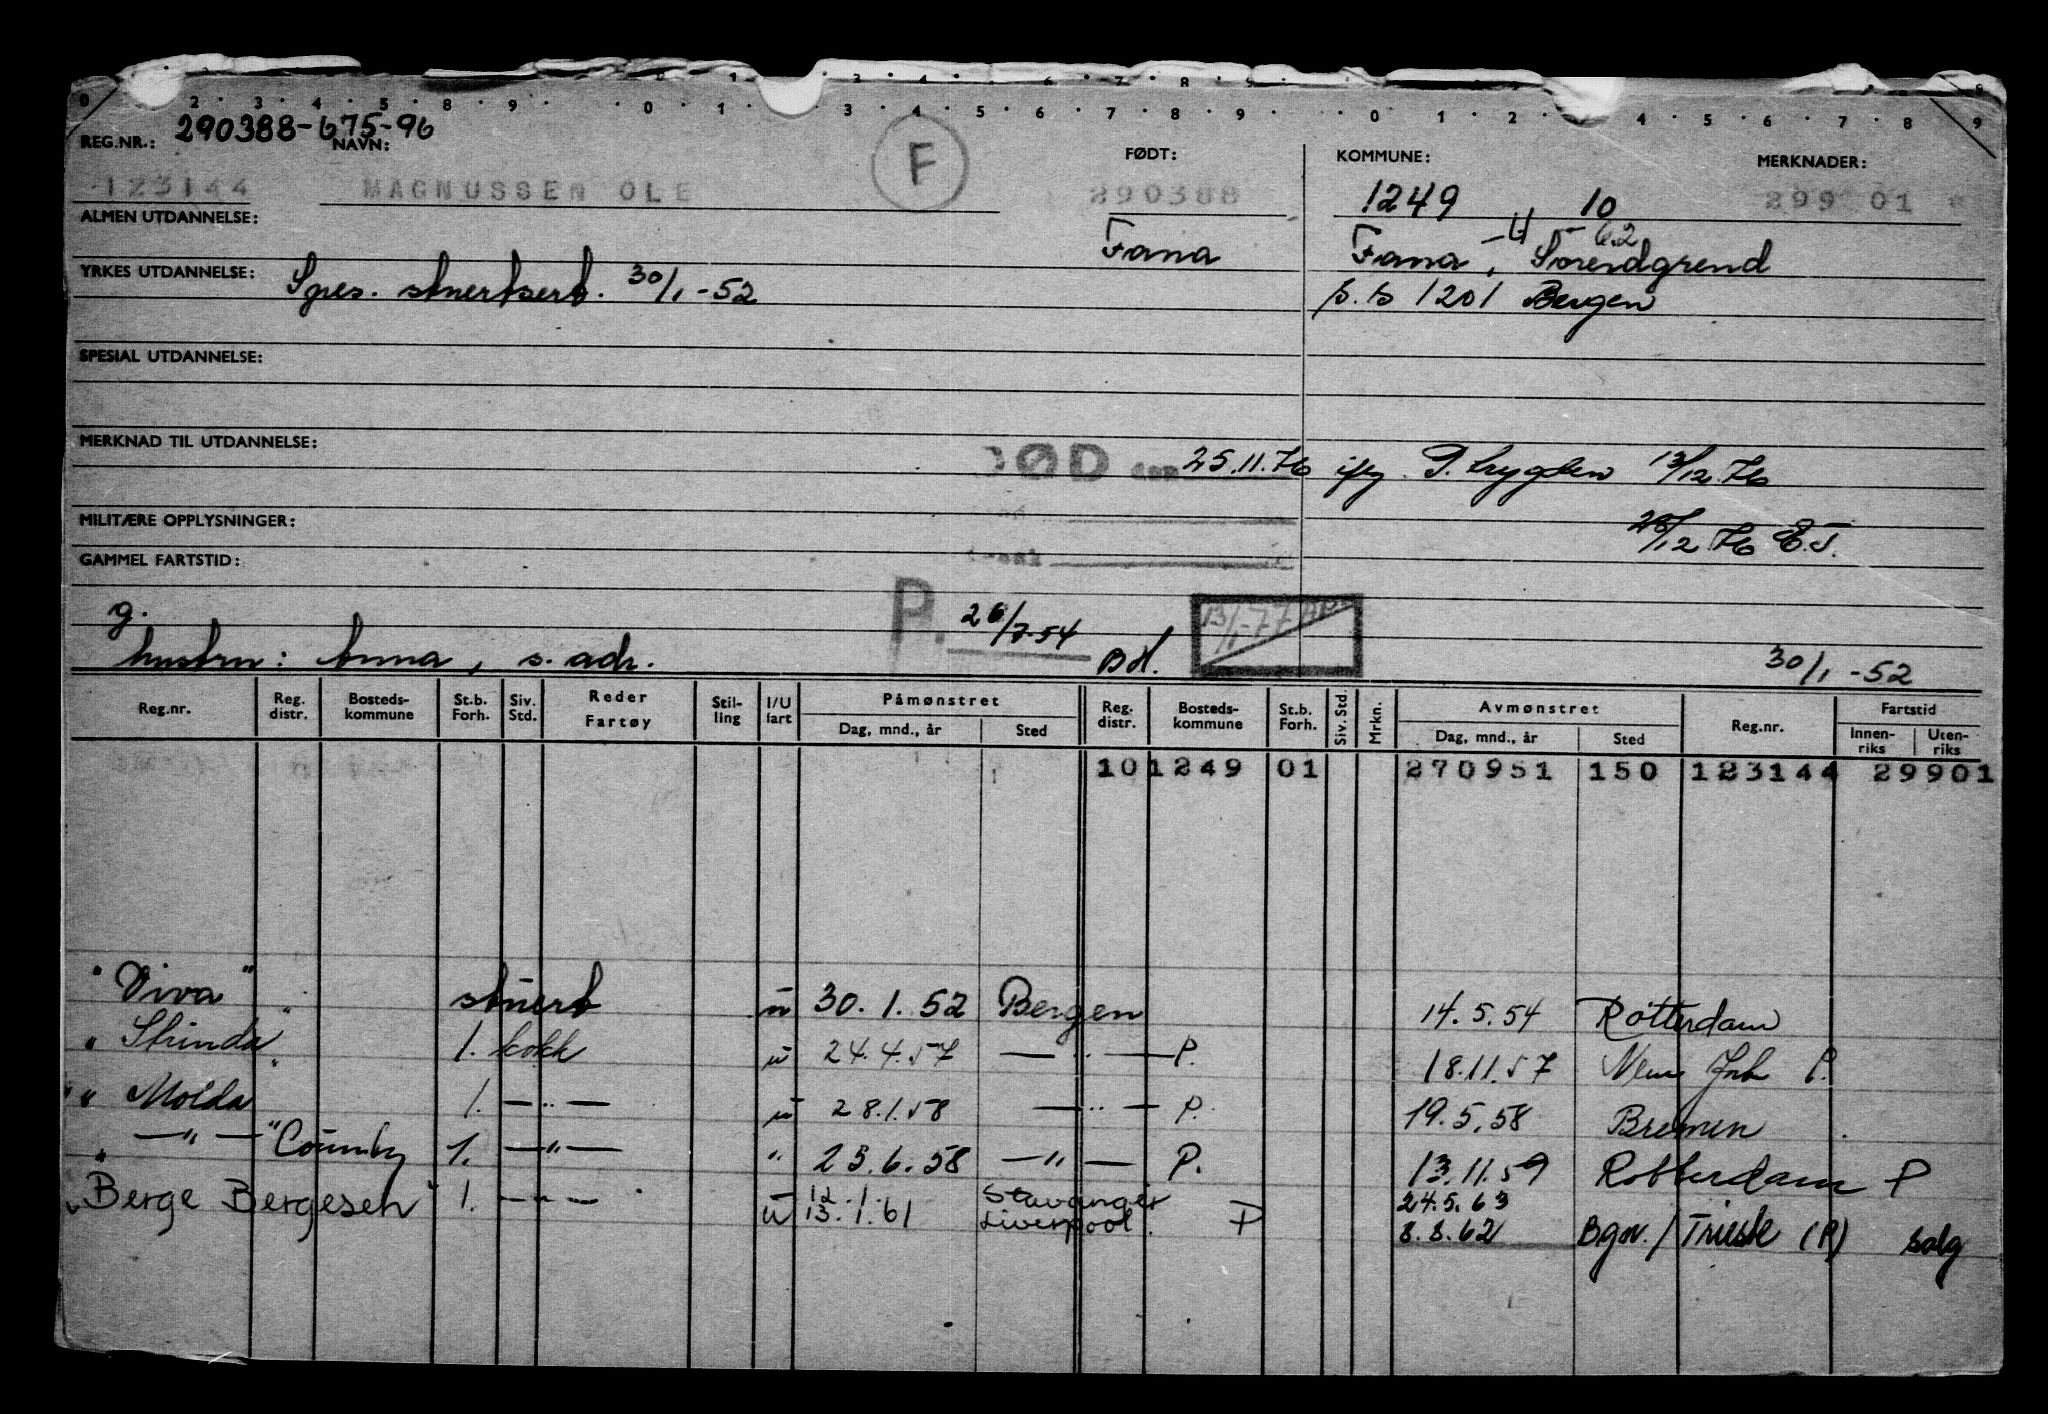 0 2 · 3 · 4 · 5 · 8 · 9 · 0 · 1 · 3 · 4 · 5 · 6 · 7 · 8 · 9 · 0 · 1 · 2 · 4 · 5 · 6 · 7 · 8 · 9
REG.NR.: 290388-675-96 NAVN: F FØDT: KOMMUNE: MERKNADER:
123144 MAGNUSSEN OLE 290388 1249 10 299 01
ALMEN UTDANNELSE: Fana Fana, Sørendgrend
YRKES UTDANNELSE: Spes. stuertsert. 30/1-52 p.b 1201 Bergen
SPESIAL UTDANNELSE:
MERKNAD TIL UTDANNELSE: DØD den 25.11.76 ifg P. trygden 13/12.76
MILITÆRE OPPLYSNINGER: 28/12.76 E.J.
GAMMEL FARTSTID:
g. P. 26/7-54 13/1-77
hustru: Anna, s. adr. 30/1-52
Reg.nr. Reg. distr. Bosteds-kommune St.b. Forh. Siv. Std. Reder Fartøy Stil-ling I/U fart Påmønstret Dag, mnd., år Sted Reg. distr. Bosteds-kommune St.b. Forh. Siv. Std. Mrkn. Avmønstret Dag, mnd., år Sted Reg.nr. Fartstid Innen-riks Uten-riks
10 1249 01 270951 150 123144 29901
"Viva" stuert u 30.1.52 Bergen 14.5.54 Rotterdam
"Strinda" 1. kokk u 24.4.57 — " — P. 18.11.57 New P.
" Molda 1. — " — u 28.1.58 — " — P. 19.5.58 Bremen
" — " — " County 1. — " — " 23.6.58 — " — P. 13.11.59 Rotterdam P
"Berge Bergesen" 1. — " — u 12.1. Stavanger 24.5.63
13.1.61 Liverpool. P 8.8.62 Bgn./Trieste (P) salg